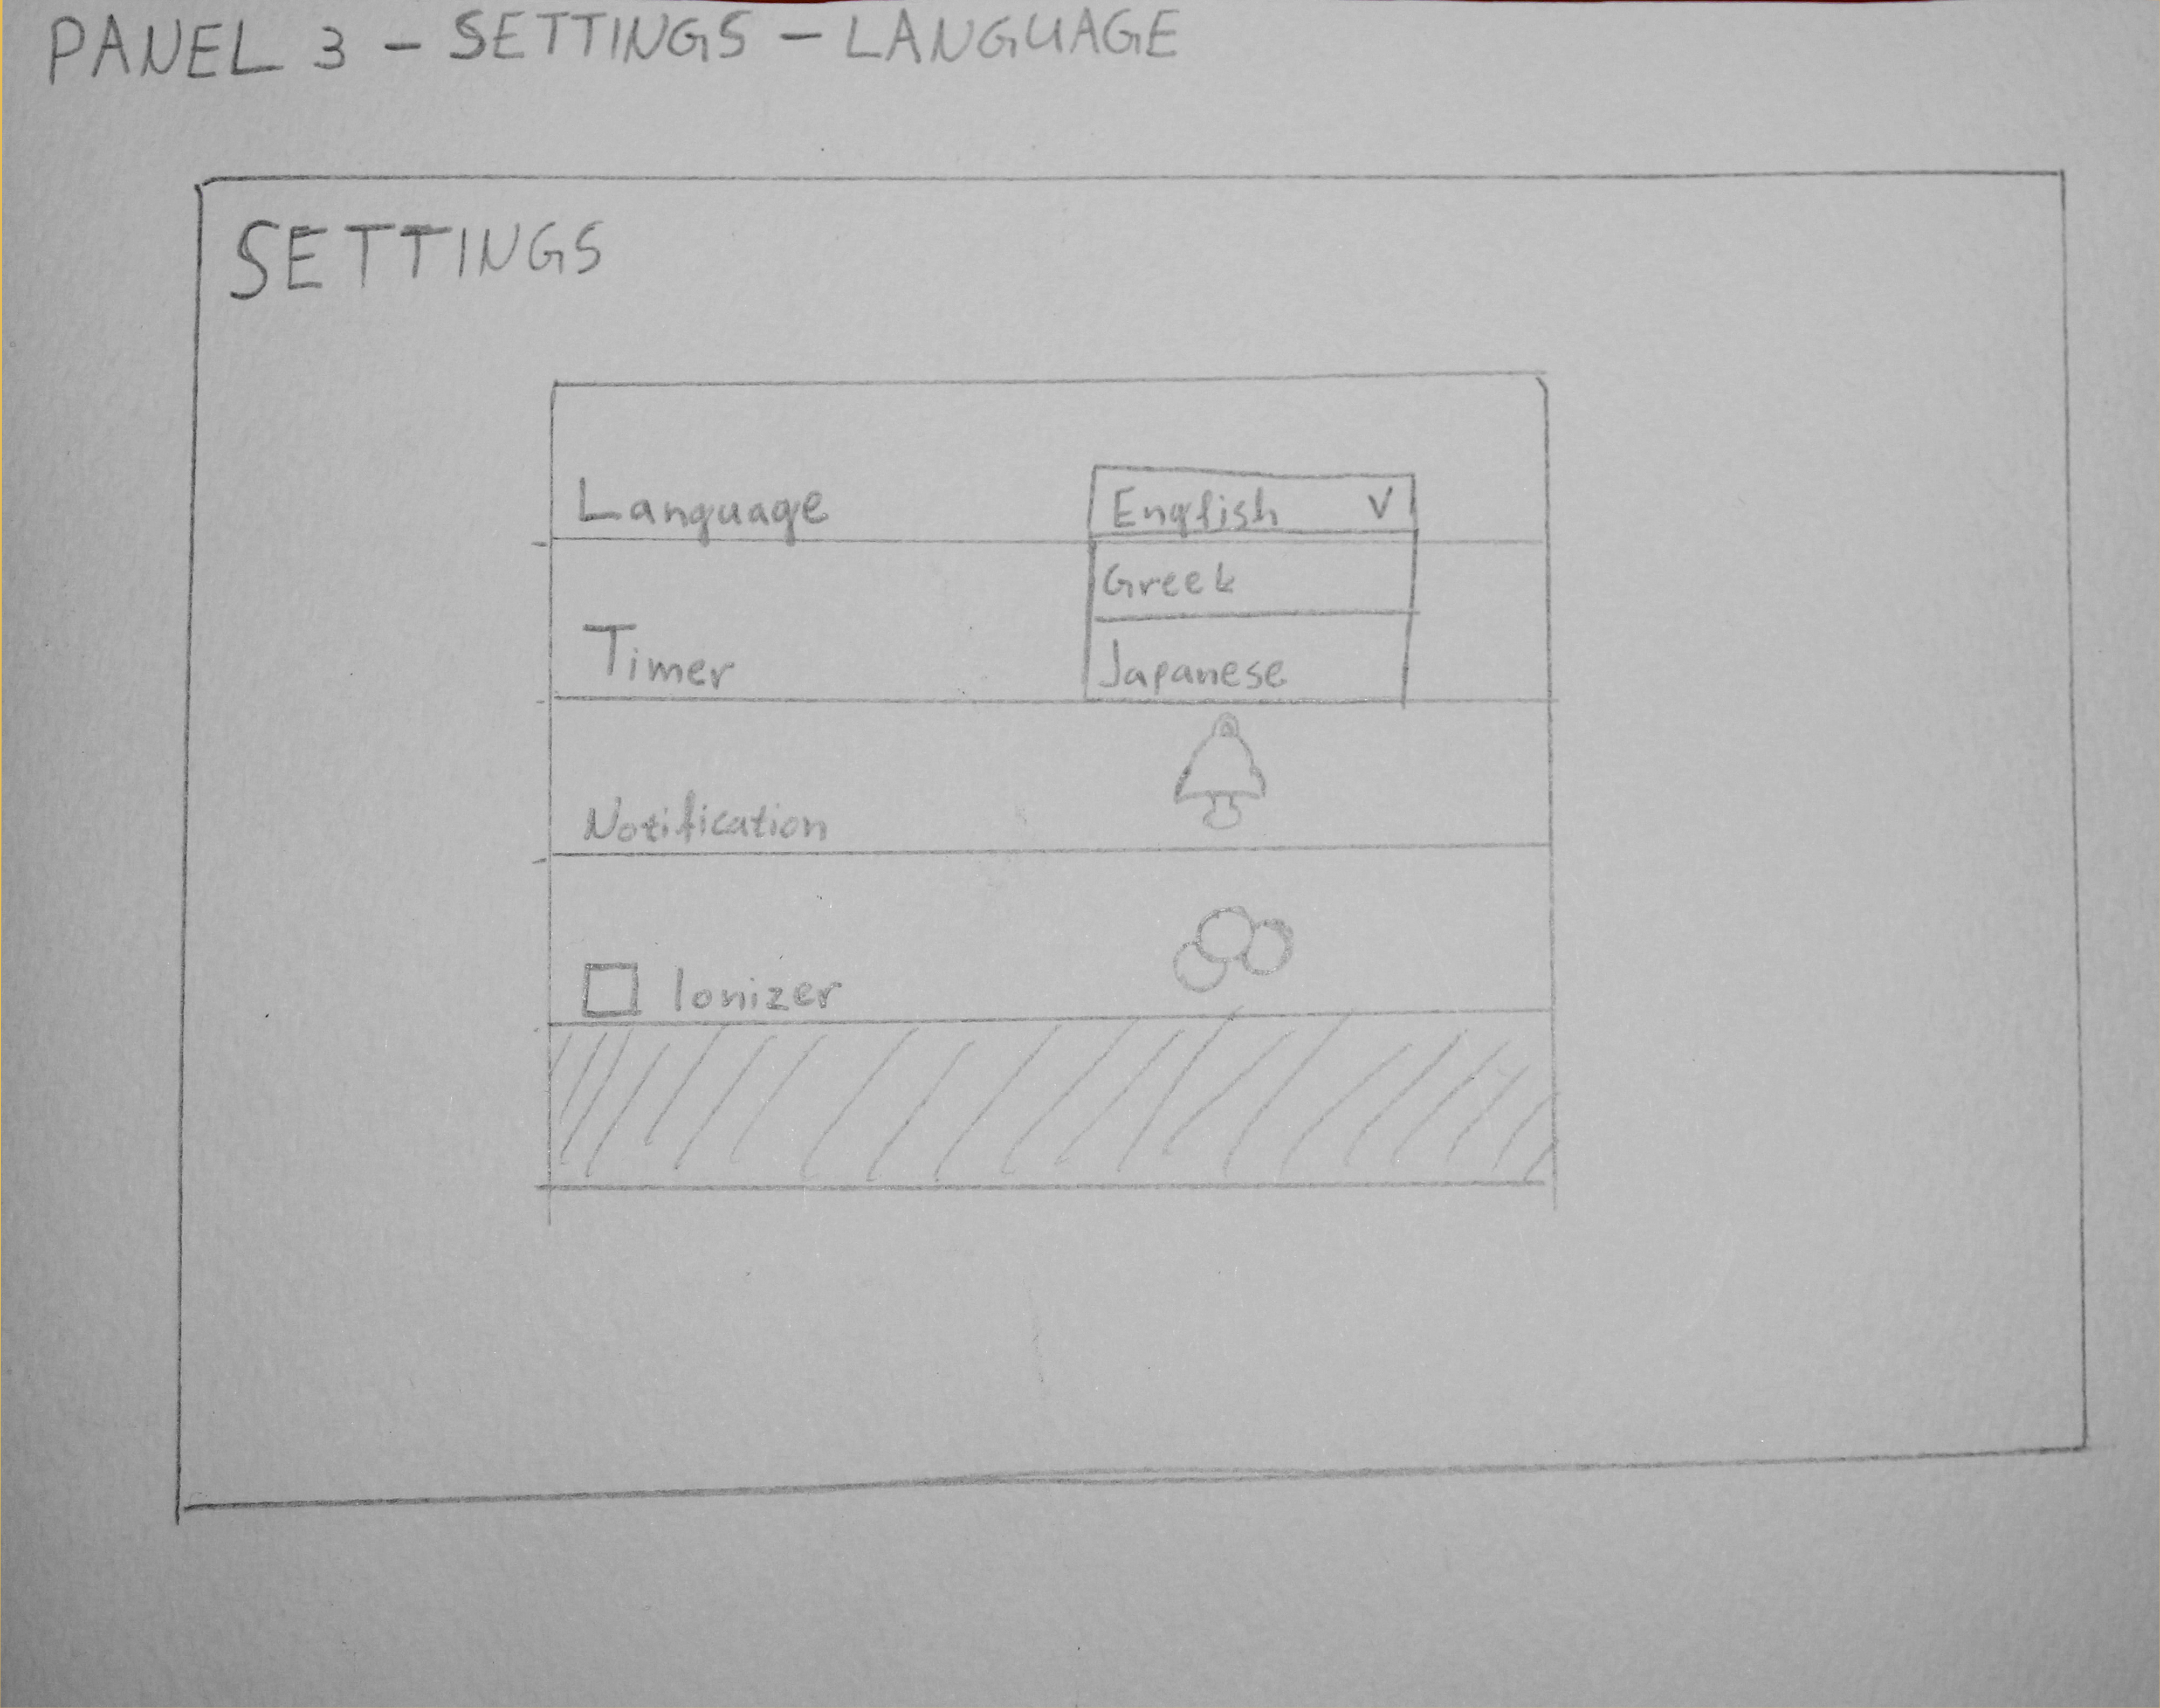 PANEL 3 - SETTINGS - LANGUAGE
SETTINGS
Language English V
Greek
Timer
Japanese
Notification
Ionizer